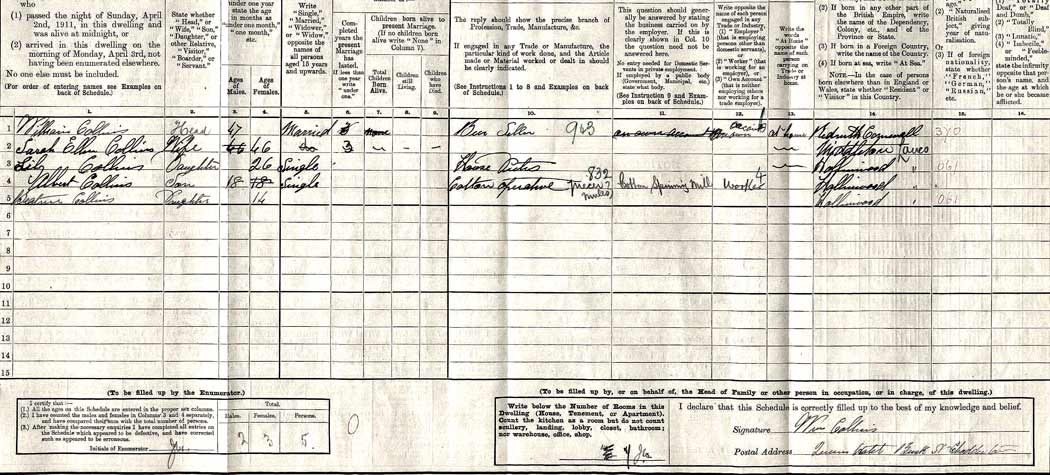 who
(1) passed the night of Sunday, April 2nd, 1911, in this dwelling and was alive at midnight, or
(2) arrived in this dwelling on the morning of Monday, April 3rd, not having been enumerated elsewhere.
No one else must be included.
(For order of entering names see Examples on back of Schedule.)
State whether "Head," or "Wife," "Son," "Daughter," or other Relative, "Visitor," "Boarder," or "Servant."
under one year state the age in months as "under one month," "one month," etc.
Ages of Males.
Ages of Females.
Write "Single," "Married," "Widower," or "Widow," opposite the names of all persons aged 15 years and upwards.
Completed years the present Marriage has lasted. If less than one year write "under one."
Children born alive to present Marriage. (If no children born alive write "None" in Column 7).
Total Children Born Alive.
Children still Living.
Children who have Died.
The reply should show the precise branch of Profession, Trade, Manufacture, &c.
If engaged in any Trade or Manufacture, the particular kind of work done, and the Article made or Material worked or dealt in should be clearly indicated.
(See Instructions 1 to 8 and Examples on back of Schedule.)
This question should generally be answered by stating the business carried on by the employer. If this is clearly shown in Col. 10 the question need not be answered here.
No entry needed for Domestic Servants in private employment.
If employed by a public body (Government, Municipal, etc.) state what body.
(See Instruction 9 and Examples on back of Schedule.)
Write opposite the name of each person engaged in any Trade or Industry,
(1) "Employer" (that is employing persons other than domestic servants),
(2) "Worker" (that is working for an employer), or
(3) "Own Account" (that is neither employing others nor working for a trade employer).
Write the words "At Home" opposite the name of each person carrying on Trade or Industry at home.
(2) If born in any other part of the British Empire, write the name of the Dependency, Colony, etc., and of the Province or State.
(3) If born in a Foreign Country, write the name of the Country.
(4) If born at sea, write "At Sea."
NOTE.—In the case of persons born elsewhere than in England or Wales, state whether "Resident" or "Visitor" in this Country.
(2) "Naturalised British subject," giving year of naturalisation. Or
(3) If of foreign nationality, state whether "French," "German," "Russian," etc.
(1) "Totally Deaf," or "Deaf and Dumb,"
(2) "Totally Blind,"
(3) "Lunatic,"
(4) "Imbecile," or "Feeble-minded," state the infirmity opposite that person's name, and the age at which he or she became afflicted.
1. 2. 3. 4. 5. 6. 7. 8. 9. 10. 11. 12. 13. 14. 15. 16.
1 William Collins Head 47 Married None Beer Seller 963 on own account at home Redruth Cornwall 370
2 Sarah Ellen Collins Wife 46 46 3
3 Lily Collins Daughter 26 Single Hollinwood 061
4 Albert Collins Son 18 18 Single Cotton Operative 832 Cotton Spinning Mill Worker 4 Hollinwood "
5 Beatrice Collins Daughter 14 Hollinwood " 061
6
7
8
9
10
11
12
13
14
15
(To be filled up by the Enumerator.)
I certify that:—
(1.) All the ages on this Schedule are entered in the proper sex columns.
(2.) I have counted the males and females in Columns 3 and 4 separately, and have compared their sum with the total number of persons.
(3.) After making the necessary enquiries I have completed all entries on the Schedule which appeared to be defective, and have corrected such as appeared to be erroneous.
Initials of Enumerator
Total.
Males. Females. Persons.
2 3 5
0
(To be filled up by, or on behalf of, the Head of Family or other person in occupation, or in charge, of this dwelling.)
Write below the Number of Rooms in this Dwelling (House, Tenement, or Apartment). Count the kitchen as a room but do not count scullery, landing, lobby, closet, bathroom; nor warehouse, office, shop.
I declare that this Schedule is correctly filled up to the best of my knowledge and belief.
Signature Wm Collins
Postal Address